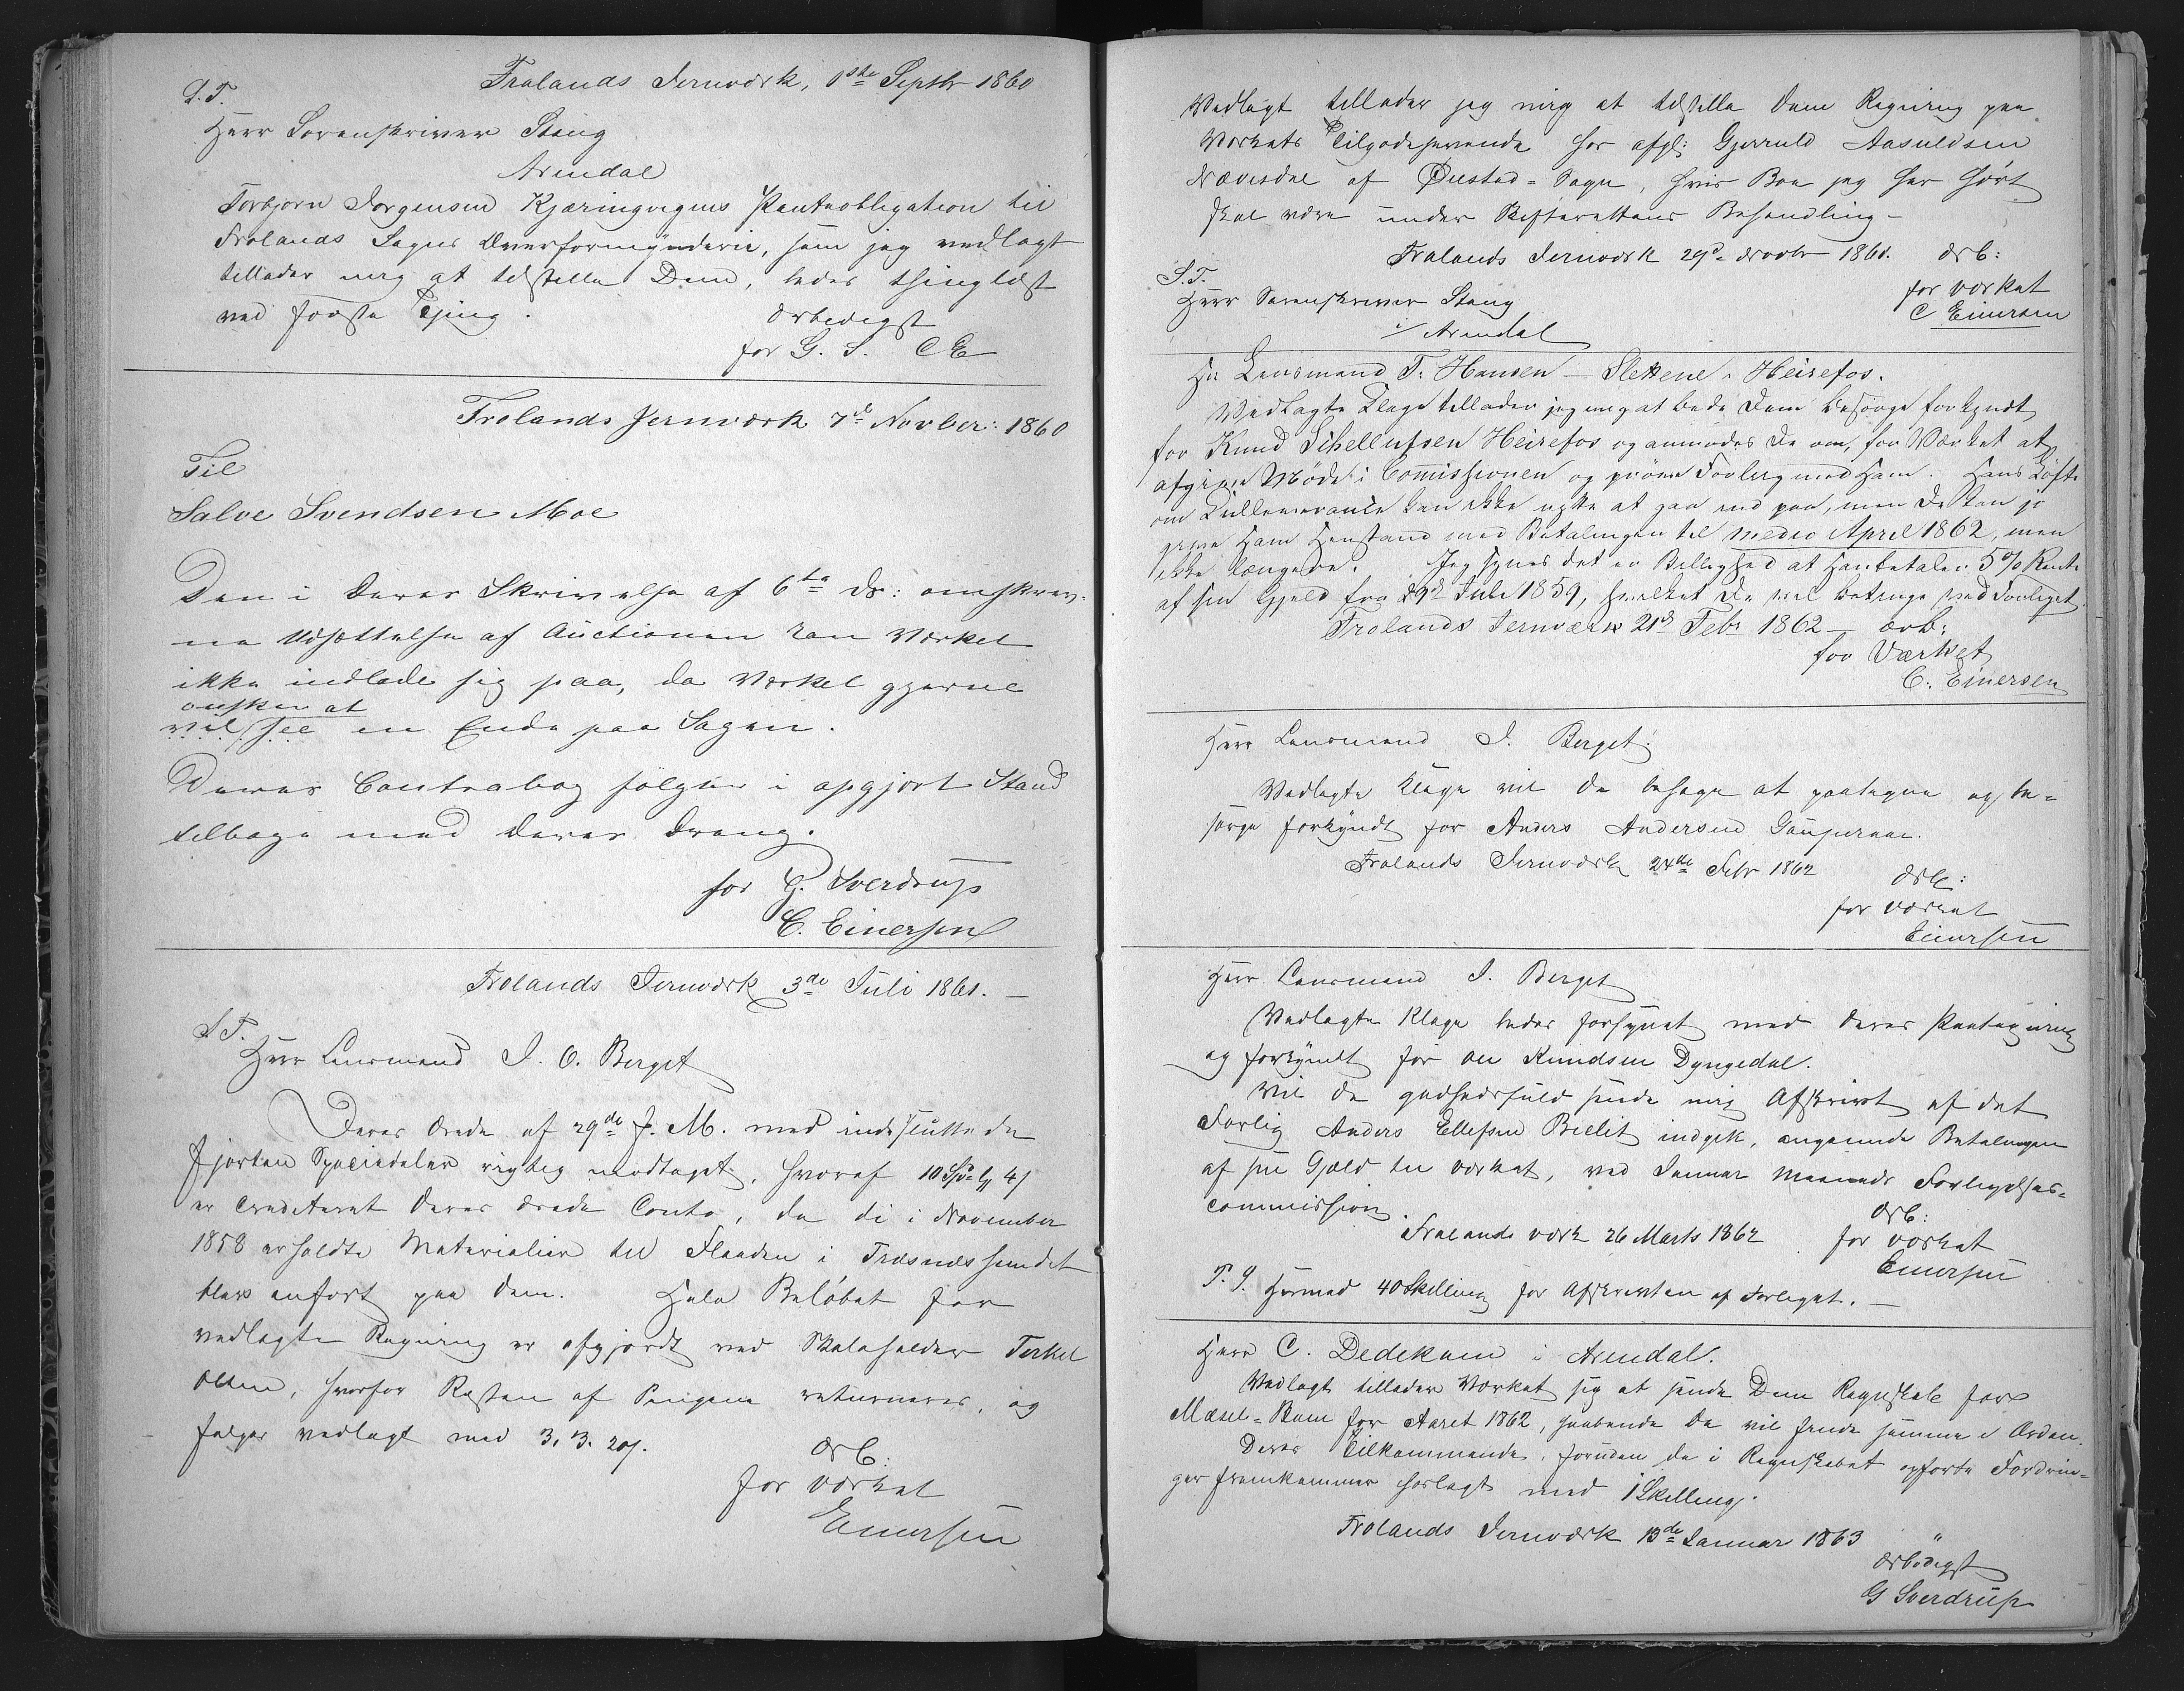 Frolands Jernværk, 1ste Septbr 1860
S. T.
Herr Sorenskriver Stang
Arendal
Torbjørn Jørgensen Kjæringvigens Panteobligation til
Frolands Sogns Overformynderie, som jeg vedlagt
tillader mig at tilstille Dem, bedes thinglæst
ved første Thing.
ærbødigst
for G. S. CE
Frolands Jernværk 7de Novber: 1860
Til
Salve Svendsen Moe
Den i Deres Skrivelse af 6te ds: omskrev-
ne Udsættelse af Auctionen kan Værket
ikke indlade sig paa, da Værket gjerne
ønsker at
vil see en Ende paa Sagen.
Deres Contrabog følger i opgjort Stand
tilbage med Deres Dreng.
for G. Sverdrup
C. Einersen
Frolands Jernværk 3de Juli 1861. —
S. T.
Herr Lensmand J. O. Berget
Deres Ærede af 29de f. M. med indsluttede
fjorten Speciedaler rigtig modtaget, hvoraf 10 Spd 4
er crediteret Deres ærede Conto, da de i November
1858 erholdte Materialier til Flaaden i Træsnæssundet
blev anført paa Dem. Hele Beløbet for
vedlagte Regning er afgjordt ved Skoleholder Terkel
Olsen, hvorfor Resten af Pengene returneres, og
følger vedlagt med 3. 3. 20/.
ærb:
for Værket
Einersen
Vedlagt tillader jeg mig at tilstille Dem Regning paa
Værkets Tilgodehavende hos afgl: Gjeruld Aasuldsen
Nævesdal af Øiestad-Sogn, hvis Boe jeg har hørt
skal være under Skifterettens Behandling —
Frolands Jernværk 29d Novbr 1861. ærb:
S. T.
for Værket
Herr Sorenskriver Stang
C Einersen
i/ Arendal
Hr Lensmand T. Hansen — Slettene, Heirefos.
Vedlagte Klage tillader jeg mig at bede Dem besørge forkyndt
for Knud Schellufsen Heirefos og anmodes De om, for Værket at
afgive Møde i Commissionen og prøve Forlig med Ham. Hans Løfte
om Kulleverance kan ikke nytte at gaa ind paa, men De kan jo
give Ham Henstand med Betalingen til medio April 1862, men
ikke længere. Jeg synes det er Billighed at Han betaler 5% Rente
af sin Gjeld fra 29d Juli 1859, hvilket De vil betinge ved Forliget.
Frolands Jernværk 21d Febr 1862 — ærb:
for Værket
C. Einersen
Herr Lensmand J. Berget.
Vedlagte Klage vil De behage at paategne og be-
sørge forkyndt for Anders Andersen
Frolands Jernværk 24de Febr 1862
ærb:
for Værket
Einersen
Herr Lensmand J. Berget
Vedlagte Klage bedes forsynet med Deres Paategning
og forkyndt for Ole Knudsen Dyngedal.
Vil De godhedsfuld sende mig Afskrivt af det
Forlig Anders Ellefsen indgik, angaaende Betalingen
af sin Gjæld til Værket, ved Januar Maaneds Forligelses-
commission.
ærb:
Frolands Værk 26 Marts 1862 for Værket
Einersen
P. S. Hermed 40 Skilling for Afskrivten af Forliget. —
Herr C. Dedekam i Arendal.
Vedlagt tillader Værket sig at sende Dem Regnskab for
Mæsel-Bom for Aaret 1862, haabende De vil finde samme i Orden.
Deres Tilkommende, foruden de i Regnskabet opførte Fordrin-
ger fremkommer herlagt med 1 Skilling.
Frolands Jernværk 13de Januar 1863
ærbødigst
G Sverdrup